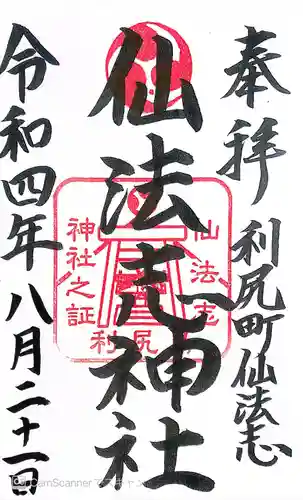 奉拝
利尻町仙法志
仙法志神社
仙法志
利尻
神社之証
令和四年八月二十一日
CamScanner でスキャン